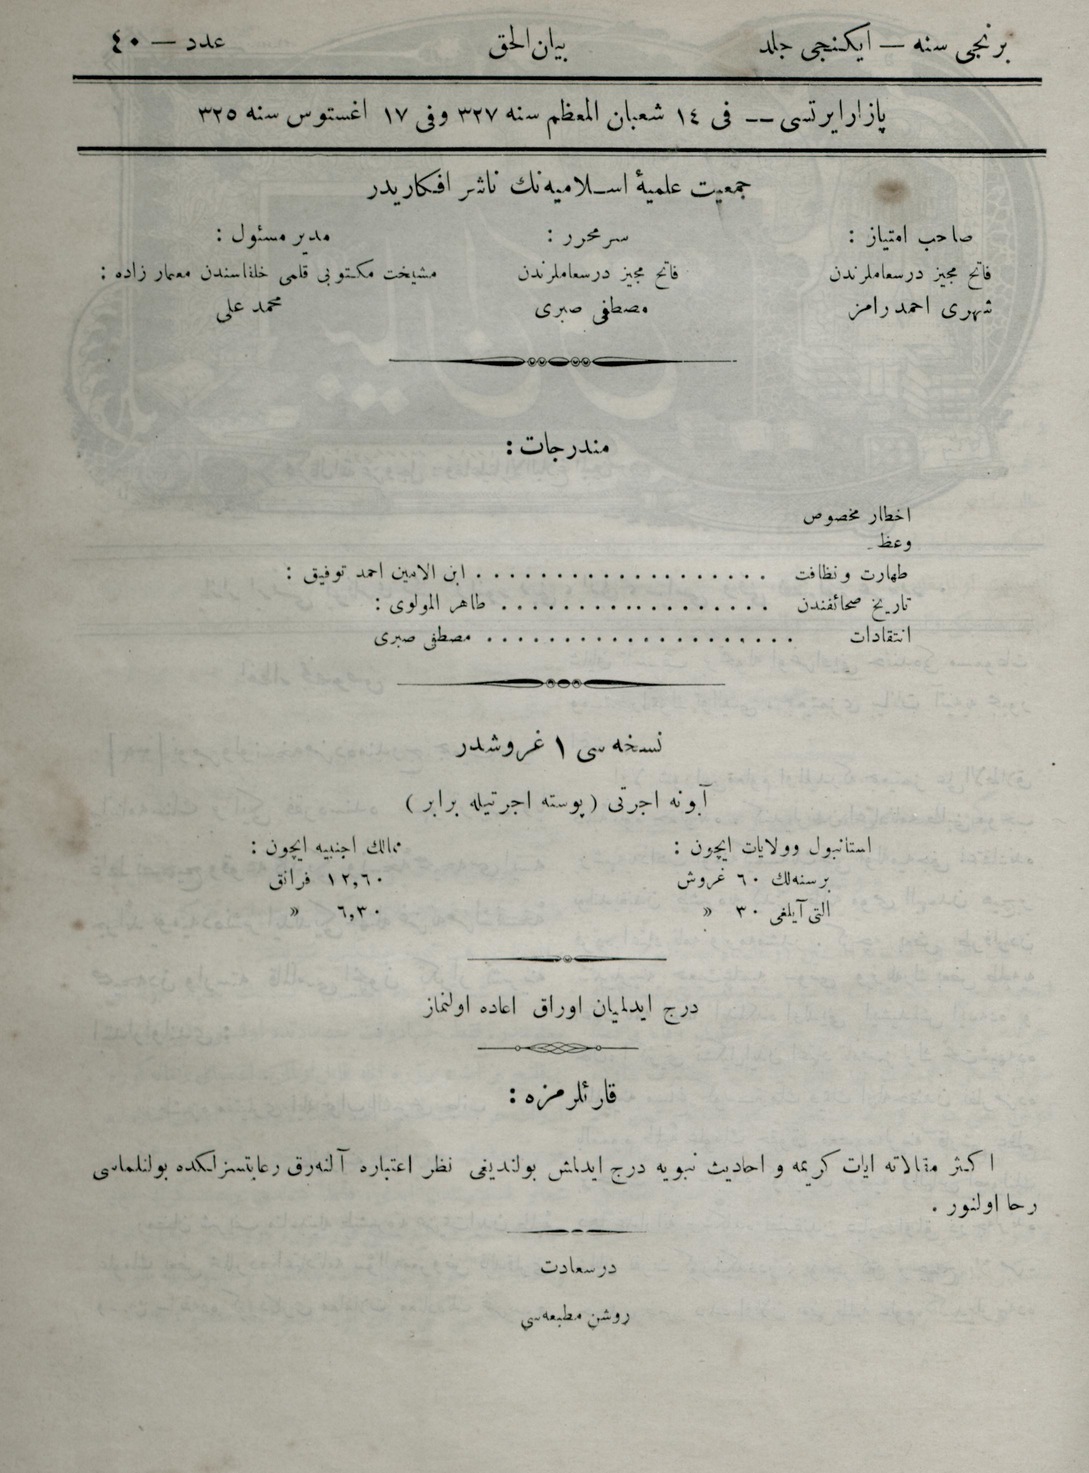 برنجی سنه — ایکنجی جلد
بیان الحق
عدد — ٤٠
پازار ایرتسی -- فی ١٤ شعبان المعظم سنه ٣٢٧ وفی ١٧ اغستوس سنه ٣٢٥
جمعیت علمیهٔ اسلامیه‌نك ناشر افکاریدر
صاحب امتیاز :
فاتح مجیز درسعاملرندن
شهری احمد رامز
سر محرر :
فاتح مجیز درسعاملرندن
مصطفی صبری
مدیر مسئول :
مشیخت مکتوبی قلمی خلفاسندن معمار زاده :
محمد علی
مندرجات :
اخطار مخصوص
وعظ
طهارت و نظافت . . . . . . . . . . . . . . . . . . . ابن الامین احمد توفیق :
تاریخ صحائفندن . . . . . . . . . . . . . . . . . . طاهر المولوی :
انتقادات . . . . . . . . . . . . . . . . . . . . . مصطفی صبری
نسخه سی ١ غروشدر
آبونه اجرتی ( پوسته اجرتیله برابر )
استانبول وولایات ایچون :
برسنه‌لك ٦٠ غروش
التی آیلغی ٣٠ »
ممالك اجنبیه ایچون :
١٢,٦٠ فرانق
٦,٣٠ »
درج ایدلمیان اوراق اعاده اولنماز
قارئلرمزه :
اکثر مقالاته ایات کریمه و احادیث نبویه درج ایدلمش بولندیغی نظر اعتباره آلنه‌رق رعایتسزلکده بولنلماسی
رجا اولنور .
درسعادت
روشن مطبعه‌سی